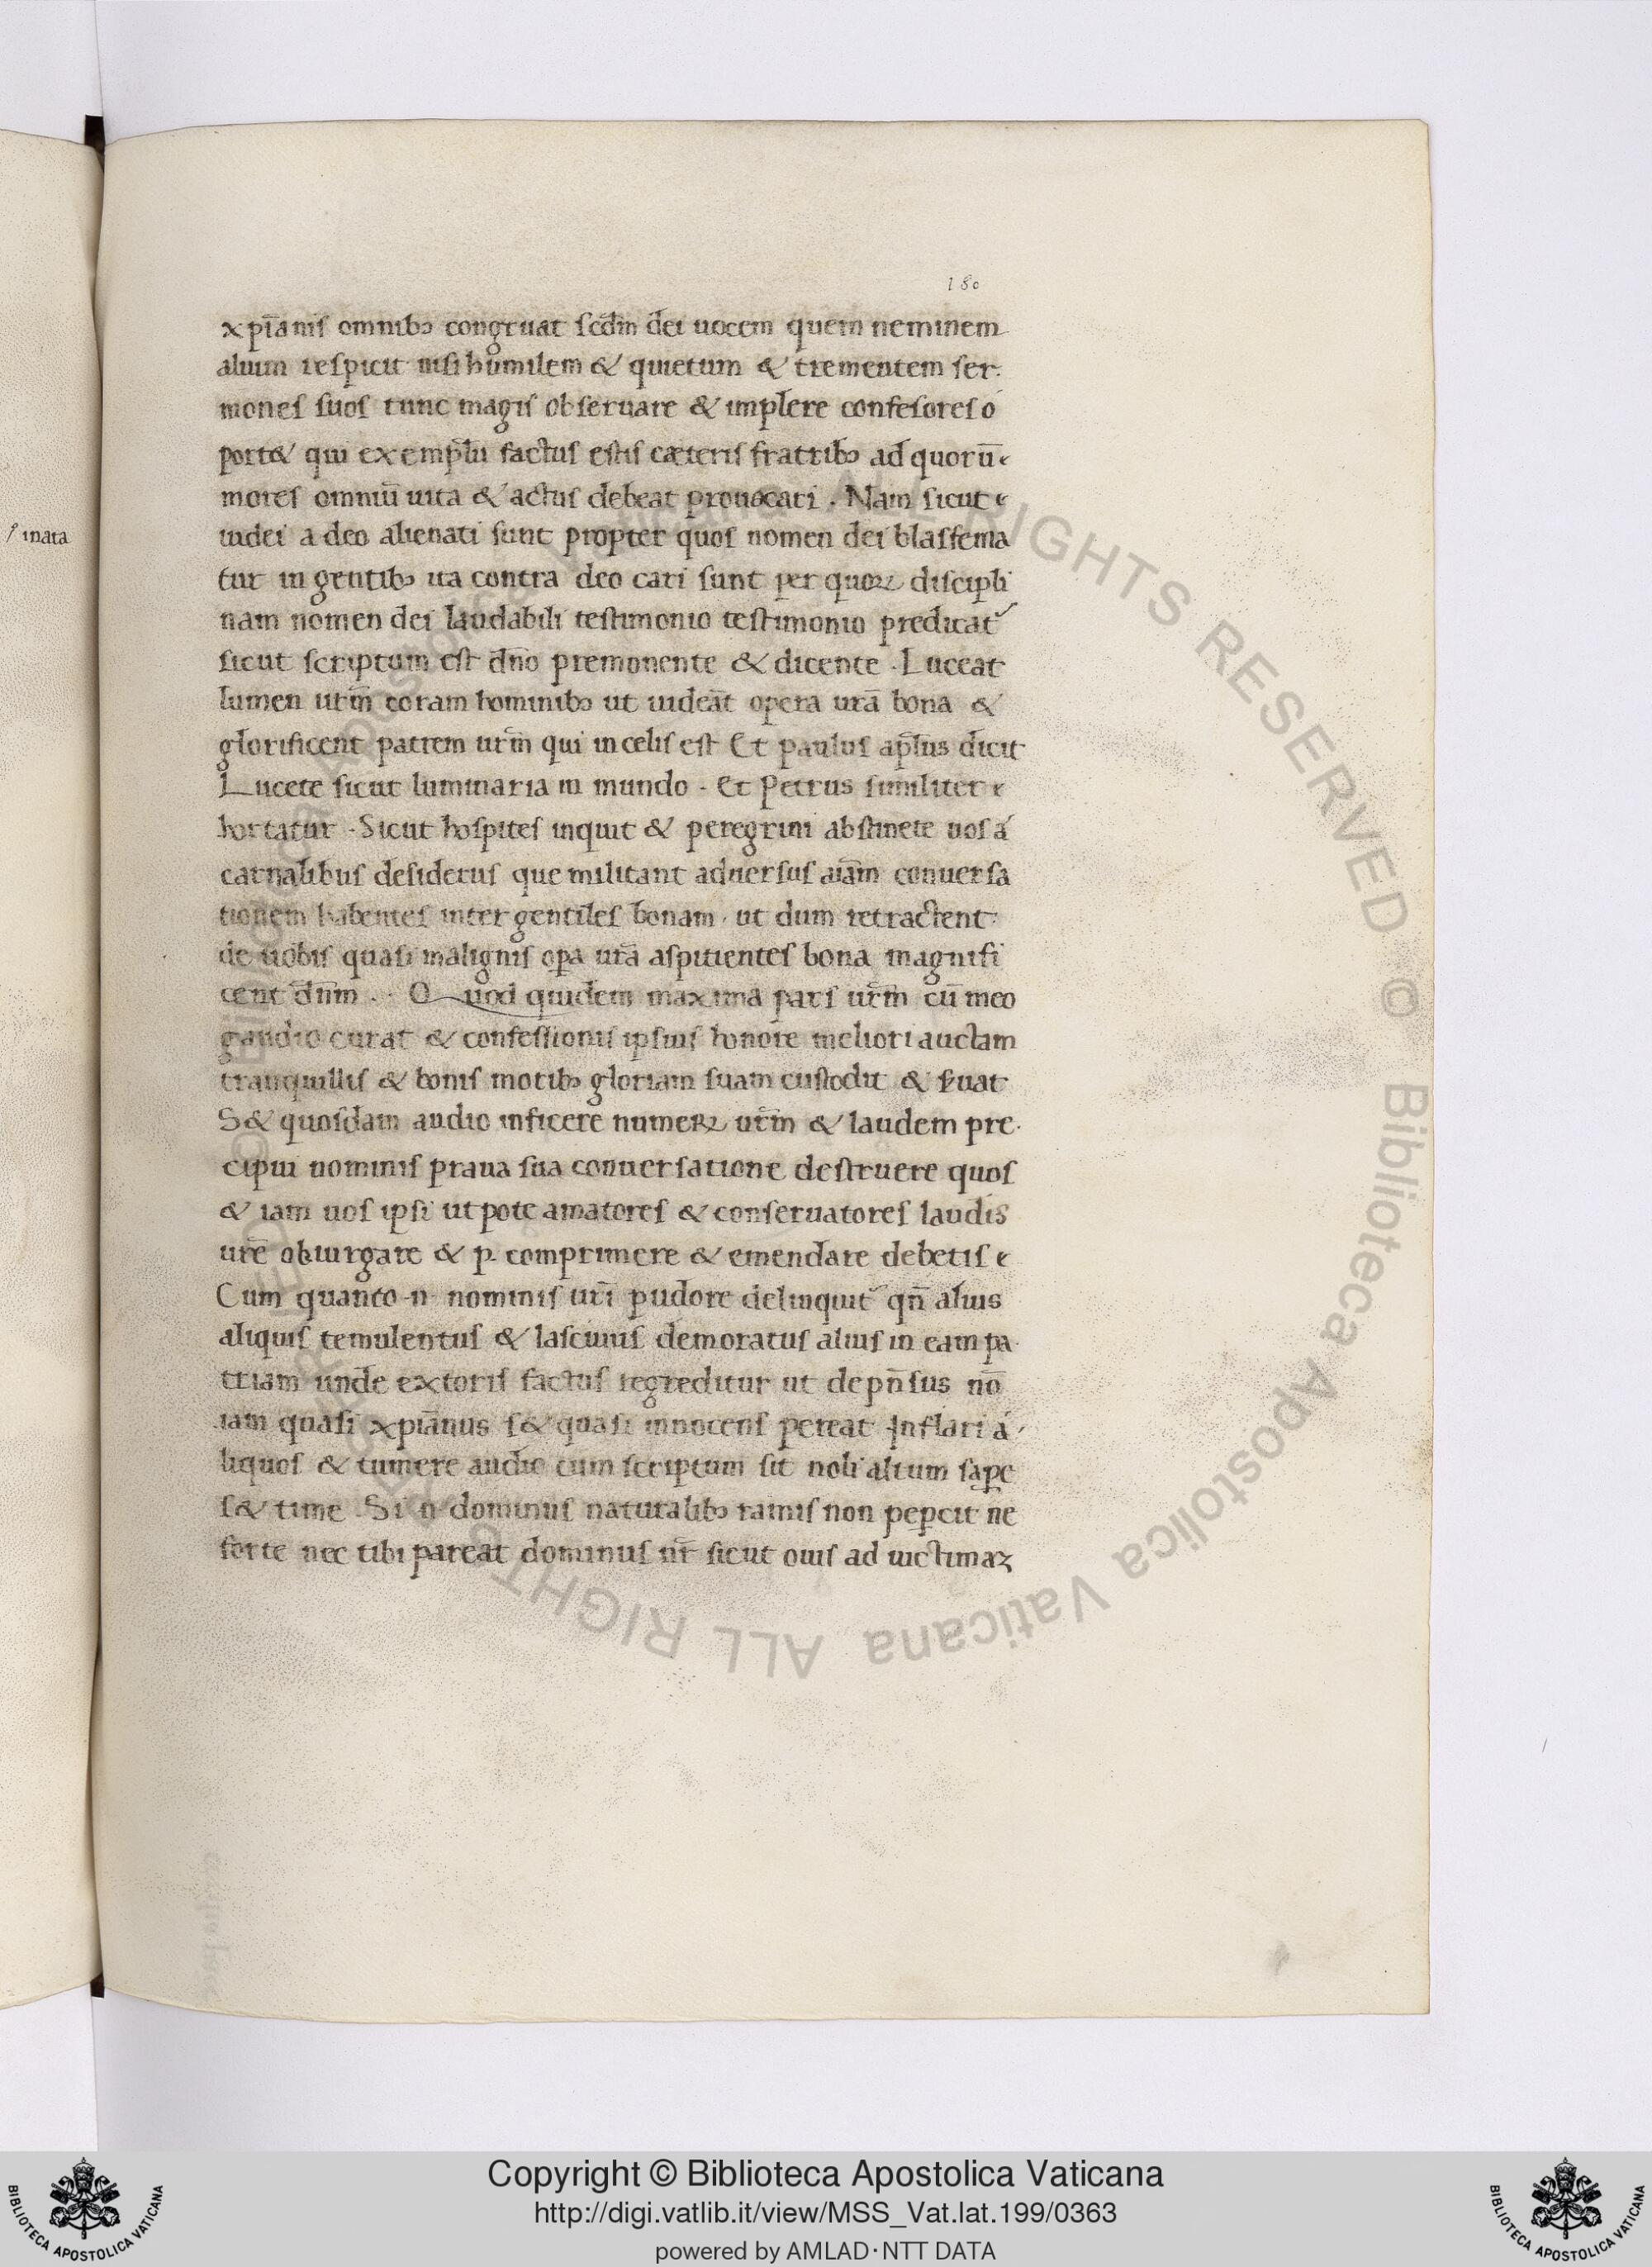 180
xp̄ianis omnibꝫ congruat scd̄m dei uocem quem neminem
alium respicit nisi humilem & quietum & trementem ser-
mones suos tunc magis obseruare & implere confesores o
port& qui exemplū factus estis cæteris fratribꝫ ad quorū
mores omniū uita & actus debeat prouocari . Nam sicut
iudei a deo alienati sunt propter quos nomen dei blasfema
tur in gentibꝫ ita contra deo cari sunt per quoꝝ discipli
nam nomen dei laudabili testimonio testimonio predicat᷑
sicut scriptum est dn̄o premonente & dicente . Luceat
lumen urm̄ coram hominibꝫ ut uideāt opera urā bona &
glorificent patrem urm̄ qui in celis est Et paulus apl̄us dicit
Lucete sicut luminaria in mundo . Et Petrus similiter
hortatur . Sicut hospites inquit & peregrini abstinete uos a
carnalibus desideriis que militant aduersus aīam conuersa
tionem habentes inter gentiles bonam . ut dum retractent
de uobis quasi malignis opa urā aspitientes bona magnifi
cent dn̄m . Quod quidem maxima pars urm̄ cū meo
gaudio curat & confessionis ipsius honore meliori auctam
tranquillis & bonis moribꝫ gloriam suam custodit & s̄uat
S& quosdam audio inficere numeꝝ urm̄ & laudem pre-
cipui nominis praua sua conuersatione destruere quos
& iam uos ipsi ut pote amatores & conseruatores laudis
urē obiurgare & p. comprimere & emendare debetis
Cum quanto .n. nominis urī pudore delinquit᷑ qn̄ alius
aliquis temulentus & lasciuus demoratus alius in eam pa-
triam unde extoris factus regreditur ut depn̄sus nō
iam quasi xp̄ianus s& quasi innocens pereat Inflari a-
liquos & tumere audio cum scriptum sit noli altum sape
s& time . Si .n. dominus naturalibꝫ ramis non pepcit ne
forte nec tibi pareat dominus nr̄ sicut ouis ad uictimaꝫ
inata
ALL RIGHTS RESERVED © Biblioteca Apostolica Vaticana
Copyright © Biblioteca Apostolica Vaticana
http://digi.vatlib.it/view/MSS_Vat.lat.199/0363
powered by AMLAD·NTT DATA
BIBLIOTECA APOSTOLICA VATICANA
BIBLIOTECA APOSTOLICA VATICANA